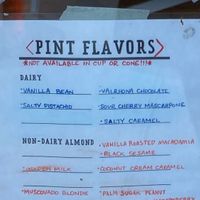 <PINT FLAVORS>
*NOT AVAILABLE IN CUP OR CONE!!!*
DAIRY
·VANILLA BEAN
·VALRHONA CHOCOLATE
·SALTY PISTACHIO
·SOUR CHERRY MASCARPONE
·SALTY CARAMEL
NON-DAIRY ALMOND
·VANILLA ROASTED MACADAMIA
·BLACK SESAME
·GOLDEN MILK
·COCONUT CREAM CARAMEL
·MUSCOVADO BLONDIE
·PALM SUGAR PEANUT